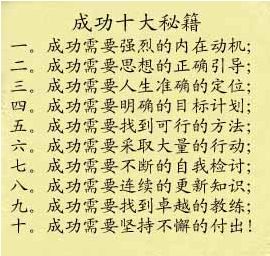 成功十大秘籍
一。成功需要强烈的内在动机;
二。成功需要思想的正确引导;
三。成功需要人生准确的定位;
四。成功需要明确的目标计划;
五。成功需要找到可行的方法;
六。成功需要采取大量的行动;
七。成功需要不断的自我检讨;
八。成功需要连续的更新知识;
九。成功需要找到卓越的教练;
十。成功需要坚持不懈的付出!